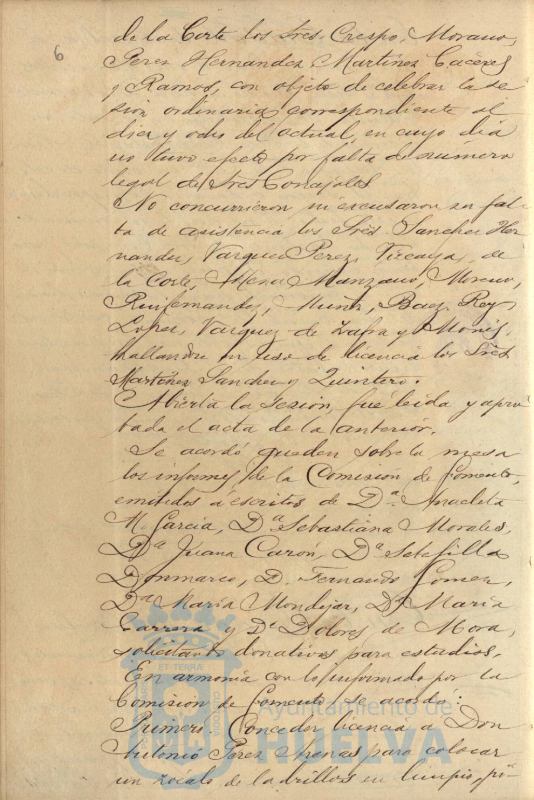 6
de la Corte los Sres Crespo, Morano,
Perez Hernandez Martinez Caceres
y Ramos, con objeto de celebrar la se
sion ordinaria correspondiente al
diez y ocho del actual, en cuyo dia
no tuvo efecto por falta de número
legal de Sres Concejales
No concurrieron ni excusaron su fal-
ta de asistencia los Srēs Sanchez Her
nandez, Vazquez Perez, Vizcaya, de
la Corte, Mena Manzano, Moreno,
Ruifernandez, Muñiz, Baez, Rey,
Lopez, Vazquez de Zafra y Monis,
hallandose en uso de licencia los Srēs
Martinez Sanchez y Quintero.
Abierta la sesion, fue leida y apro
bada el acta de la anterior.
Se acordó queden sobre la mesa
los informes de la Comisión de Fomento,
emitidos á escritos de Dª. Anacleta
M. Garcia, Dª Sebastiana Morales,
Dª Juana Caron, Dª Setefilla
Donmarco, D. Fernando Gomez,
Dª Maria Mondejar, Dª Maria
Carrera y Dª Dolores de Mora,
solicitando donativos para estudios.
En armonia con lo informado por la
Comision de Fomento se acordó:
Primero. Conceder licencia a Don
Antonio Perez Arenas para colocar
un zócalo de ladrillos en limpio, pª-
Ayuntamiento de
HUELVA